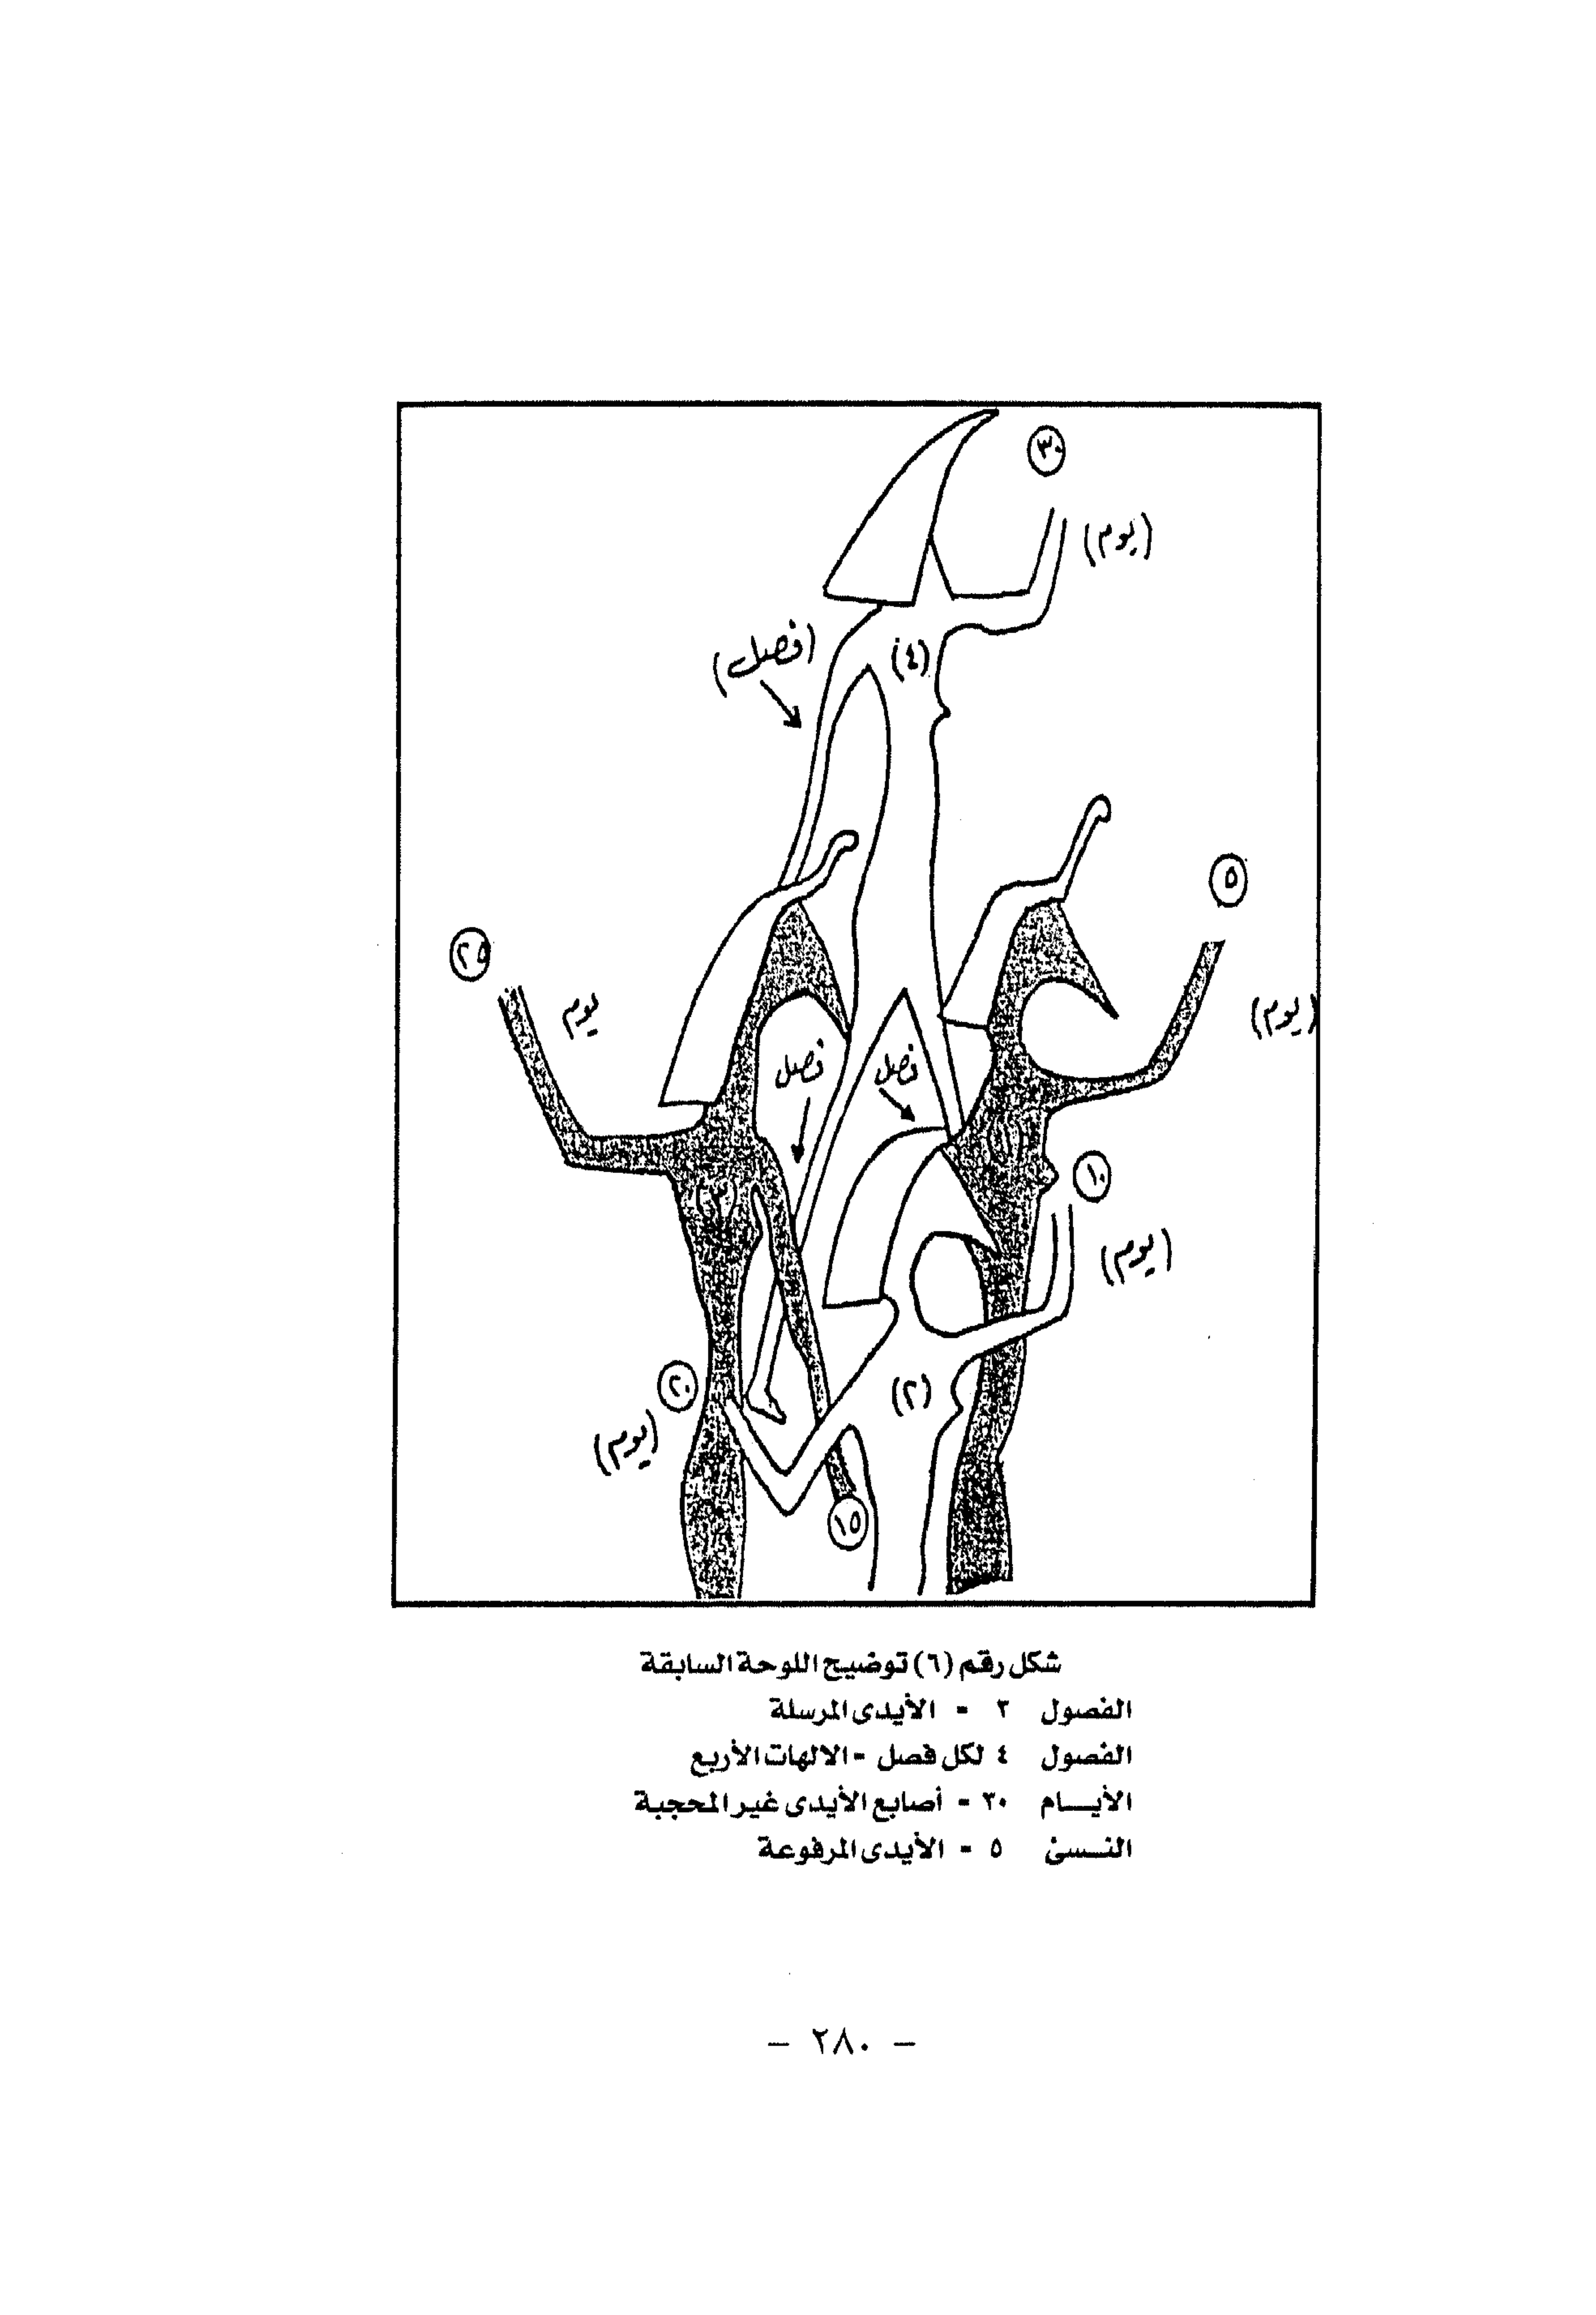 ٣٠
(يوم)
(فصل)
(٤)
٥
٢٥
يوم
(يوم)
فصل
فصل
(١)
١٠
(٣)
(يوم)
٢٠
(٢)
(يوم)
١٥
شكل رقم (٦) توضيح اللوحة السابقة
الفصول ٣ = الأيدى المرسلة
الفصول ٤ لكل فصل = الالهات الأربع
الأيـــام ٣٠ = أصابع الأيدى غير المحجبة
النـسئ ٥ = الأيدى المرفوعة
– ٢٨٠ –